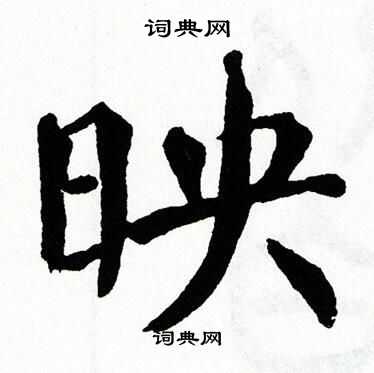 词典网
映
词典网